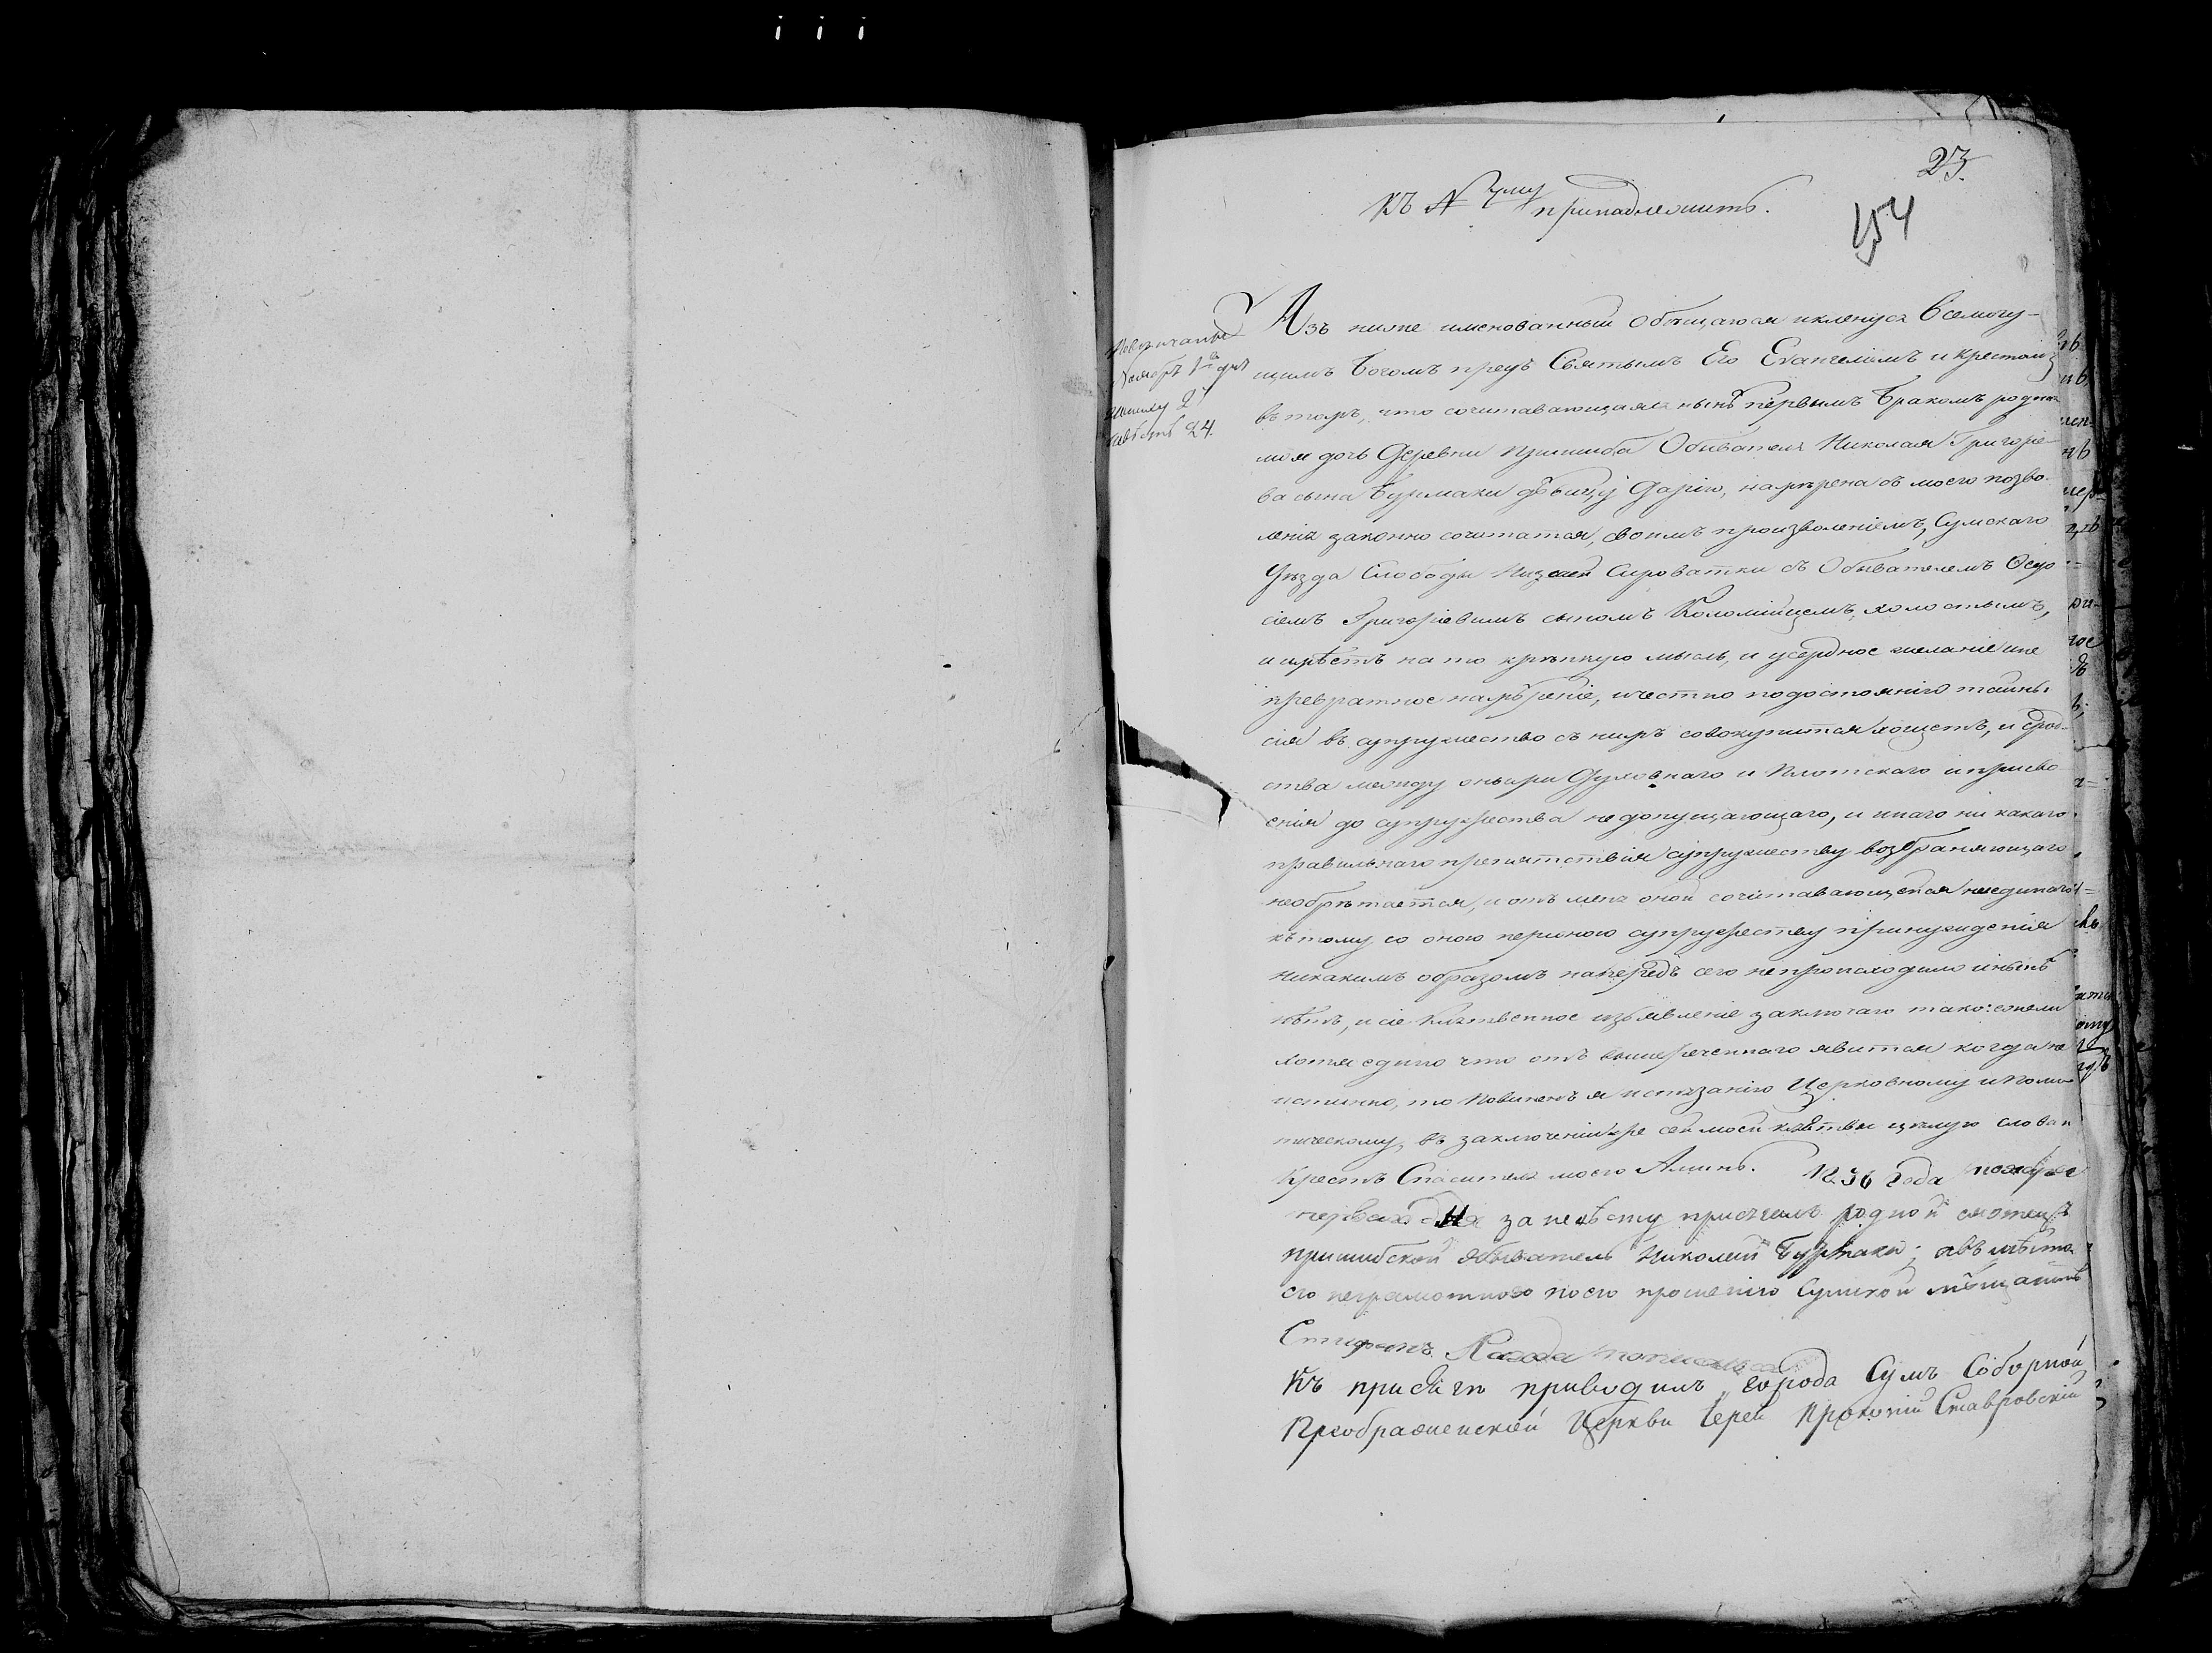 23.
КЪ № принадлежитъ.
154
Повѣнчаны
Ноября 1го дня
жениху 2
невѣстѣ 24.
Азъ ниже имянованный Обѣщаюся икленуся Всемогу-
щимъ Богомъ предъ Святымъ Его Евангелiемъ и крестомъ
въ томъ, что сочитавающаяся нынѣ первымъ бракомъ родная
моя дочь Деревни Пришиба Обывателя Николая Григорье-
ва сына Бурмаки дѣвицу Дарiю, намѣрена съ моего позво-
ленiя законно сочитатся, своимъ произволенiемъ, Сумскаго
Уѣзда Слободы Низшей Сироватки съ Обывателемъ Федо
сiемъ Григорiевимъ сыномъ Коломiйцемъ, холостымъ,
и имѣетъ на то крѣпкую мысль, и усердное желанiе ине
превратное намѣренiе, ичестно подостоянiю тайны
сiя въ супружество съ нимъ совокупится хощетъ, и срод-
ства между оными Духовнаго и Плотскаго иприсво
енiя до супружества недопущающаго, и инаго ни какаго
правильнаго препятствiя супружеству возбраняющаго
необрѣтается, и отъ мене оной сочитавающейся ниединаго
къ тому со оною персоною супружеству принужденiя
никакимъ образомъ напередъ сего непроисходило инынѣ
нѣтъ, и сiе Клятвенное изъявленiе заключаю тако: ежели
хотя едино что отъ вышереченнаго явится когда не
истинно, то Повиненъ я истязанiю Церковному и Поли
тическому, въ заключенiиже сей моей клятвы цѣлую слова и
Крестъ Спасителя моего Аминь. 1836 года ноября
перваго дня за невѣсту присягалъ родной отецъ
пришибской обыватель Николай Бурмака; авъ мѣсто
его неграмотного поего прошенiю Сумской мѣщанинъ
Стефанъ
Къ присягѣ приводилъ города Сумъ Соборной
Преображенской Церкви Iерей Прокопiй Ставровскiй